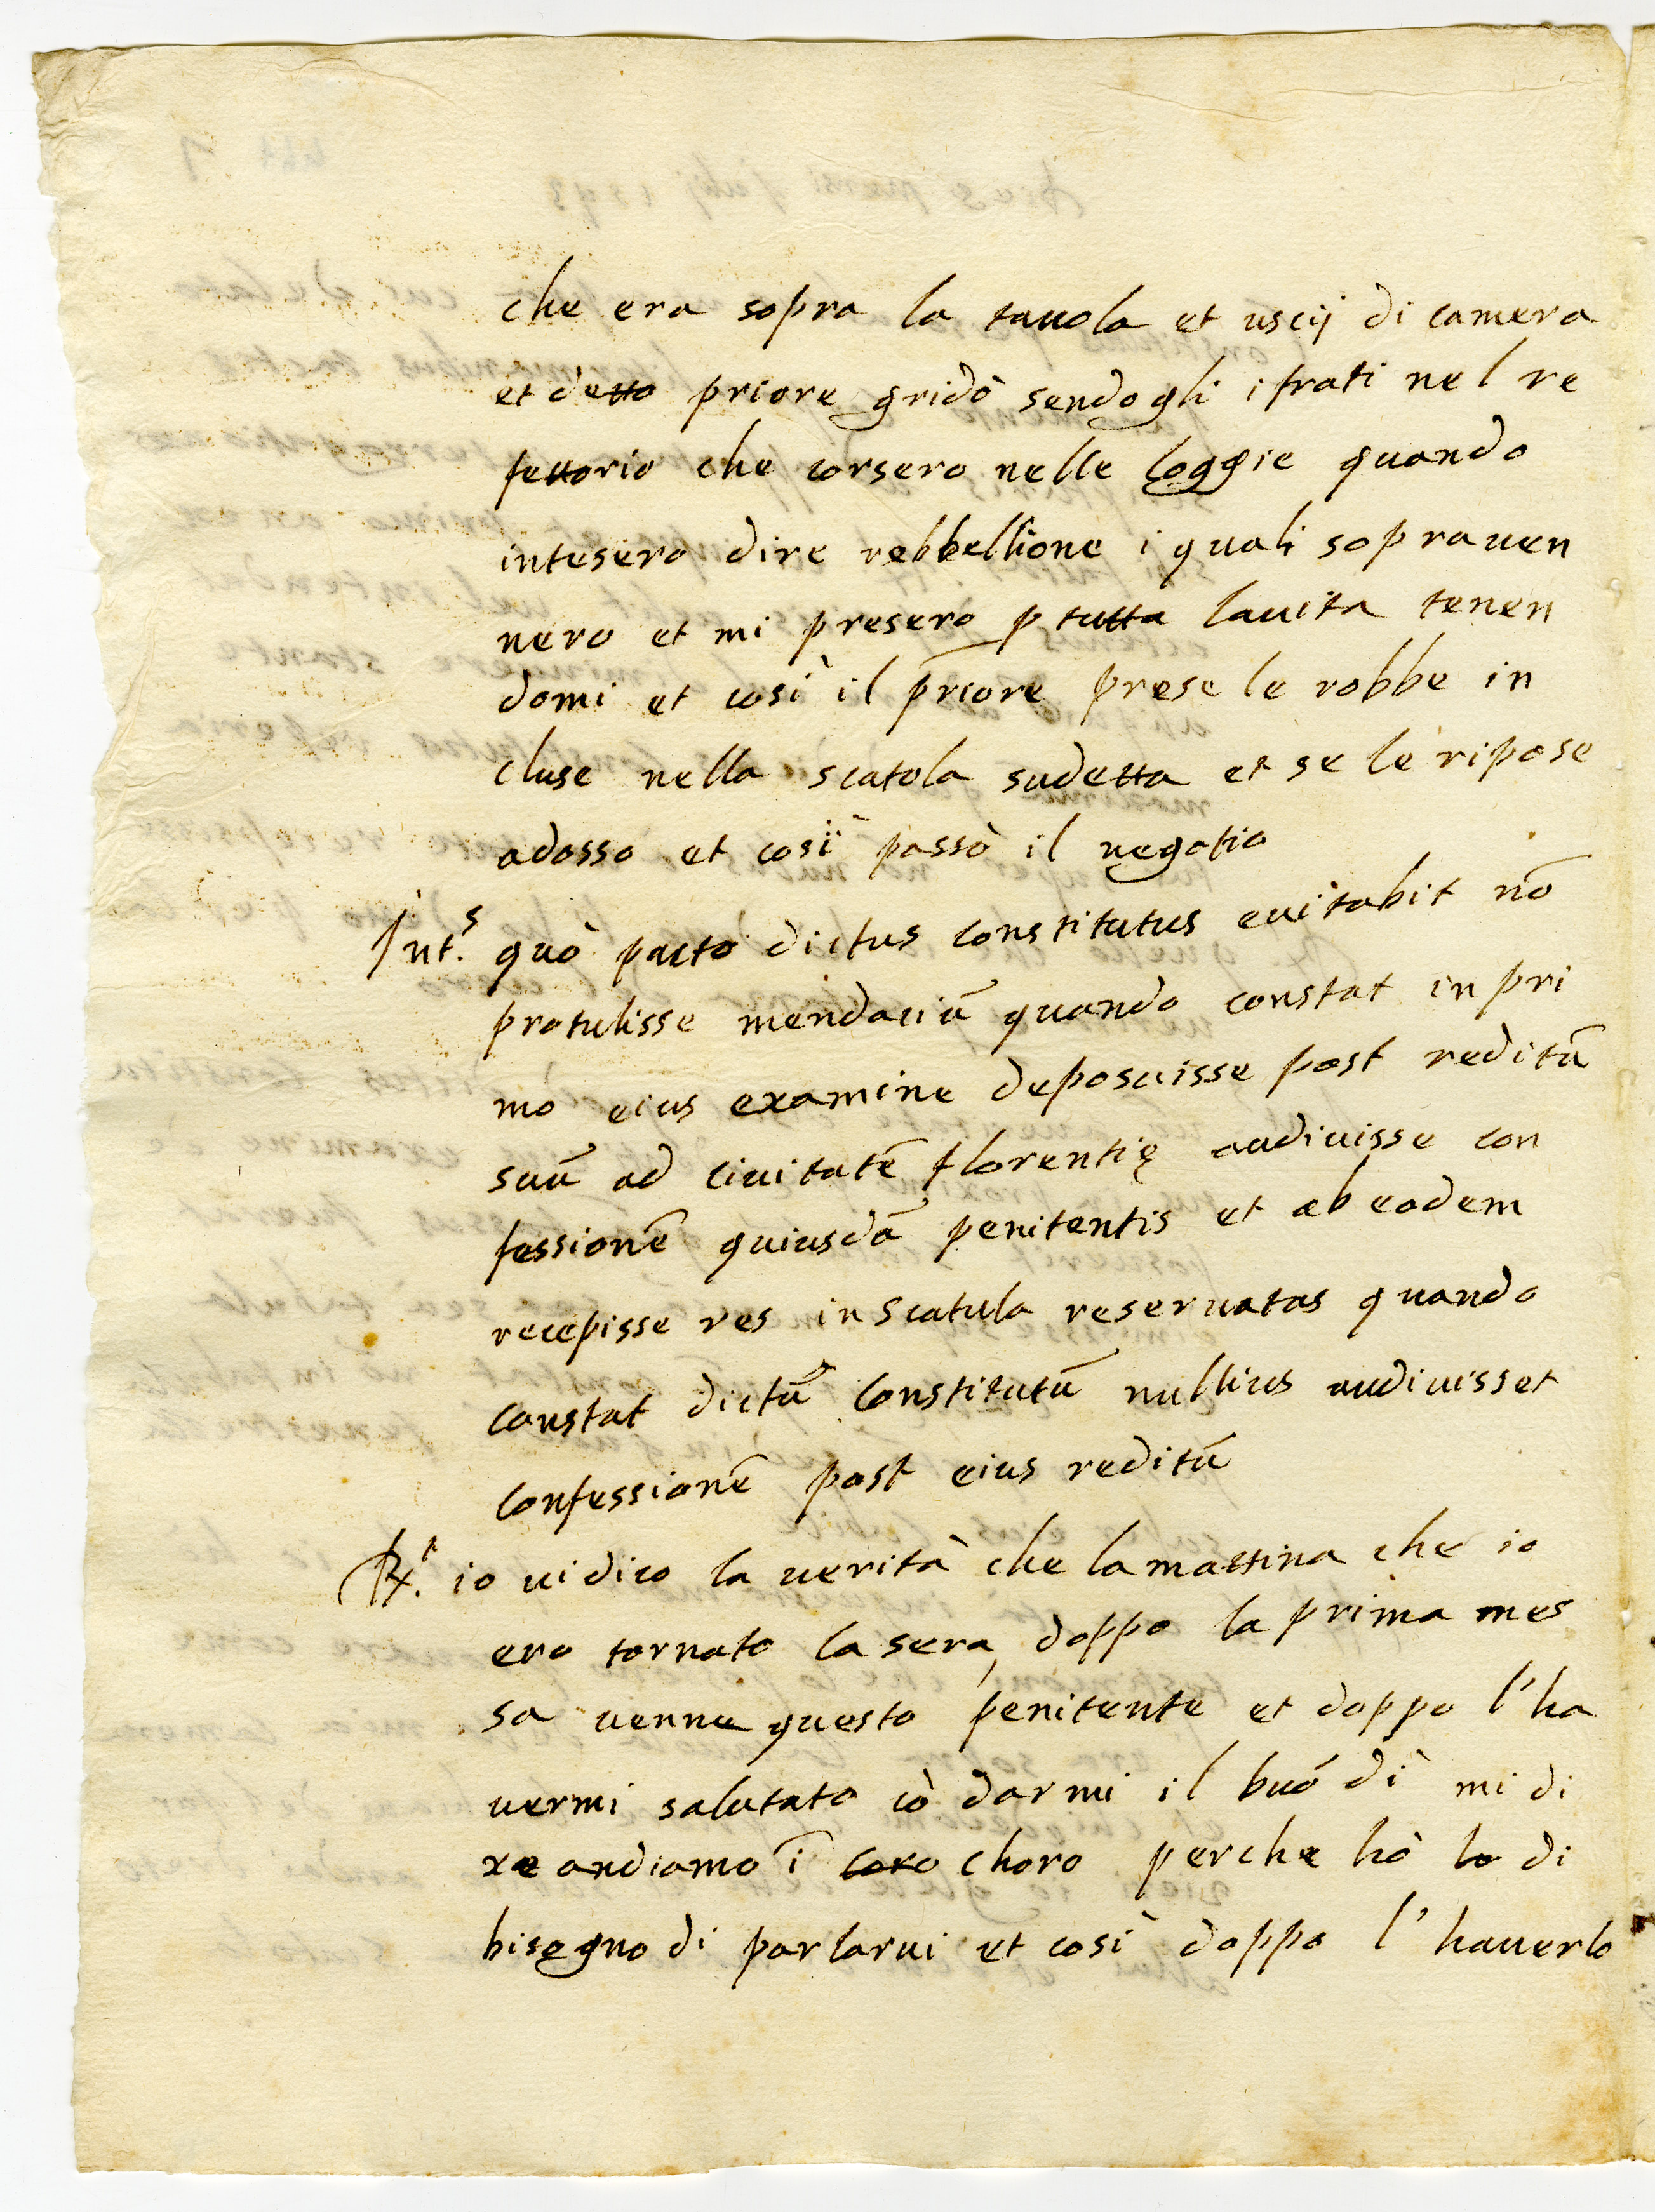 che era sopra la tauola et uscij di camera
et detto priore gridò sendo gli i frati nel re
fettorio che corsero nelle loggie quando
intesero dire rebbellione i quali soprauen
nero et mi presero p tutta lauita tenen
domi et così il priore prese le robbe in
cluse nella scatola sudetta et se le ripose
adosso et così passò il negotio
Int.s quò pacto dictus constitutus euitabit nō
protulisse mendaciū quando constat in pri
mo eius examine deposuisse post reditū
suū ad ciuitatē florentię audiuisse con
fessionē quiusdā penitentis et ab eodem
recepisse res in scatula reseruatas quando
constat dictū constitutū nullius audiuisset
confessionē post eius reditū
R.t io ui dico la uerità che la mattina che io
ero tornato la sera, doppo la prima mes
sa uenne questo penitente et doppo l'ha
uermi salutato cō darmi il buō dì mi di
xe andiamo ī coro choro perche hò lo di
bisegno di parlarui et così doppo l'hauerlo